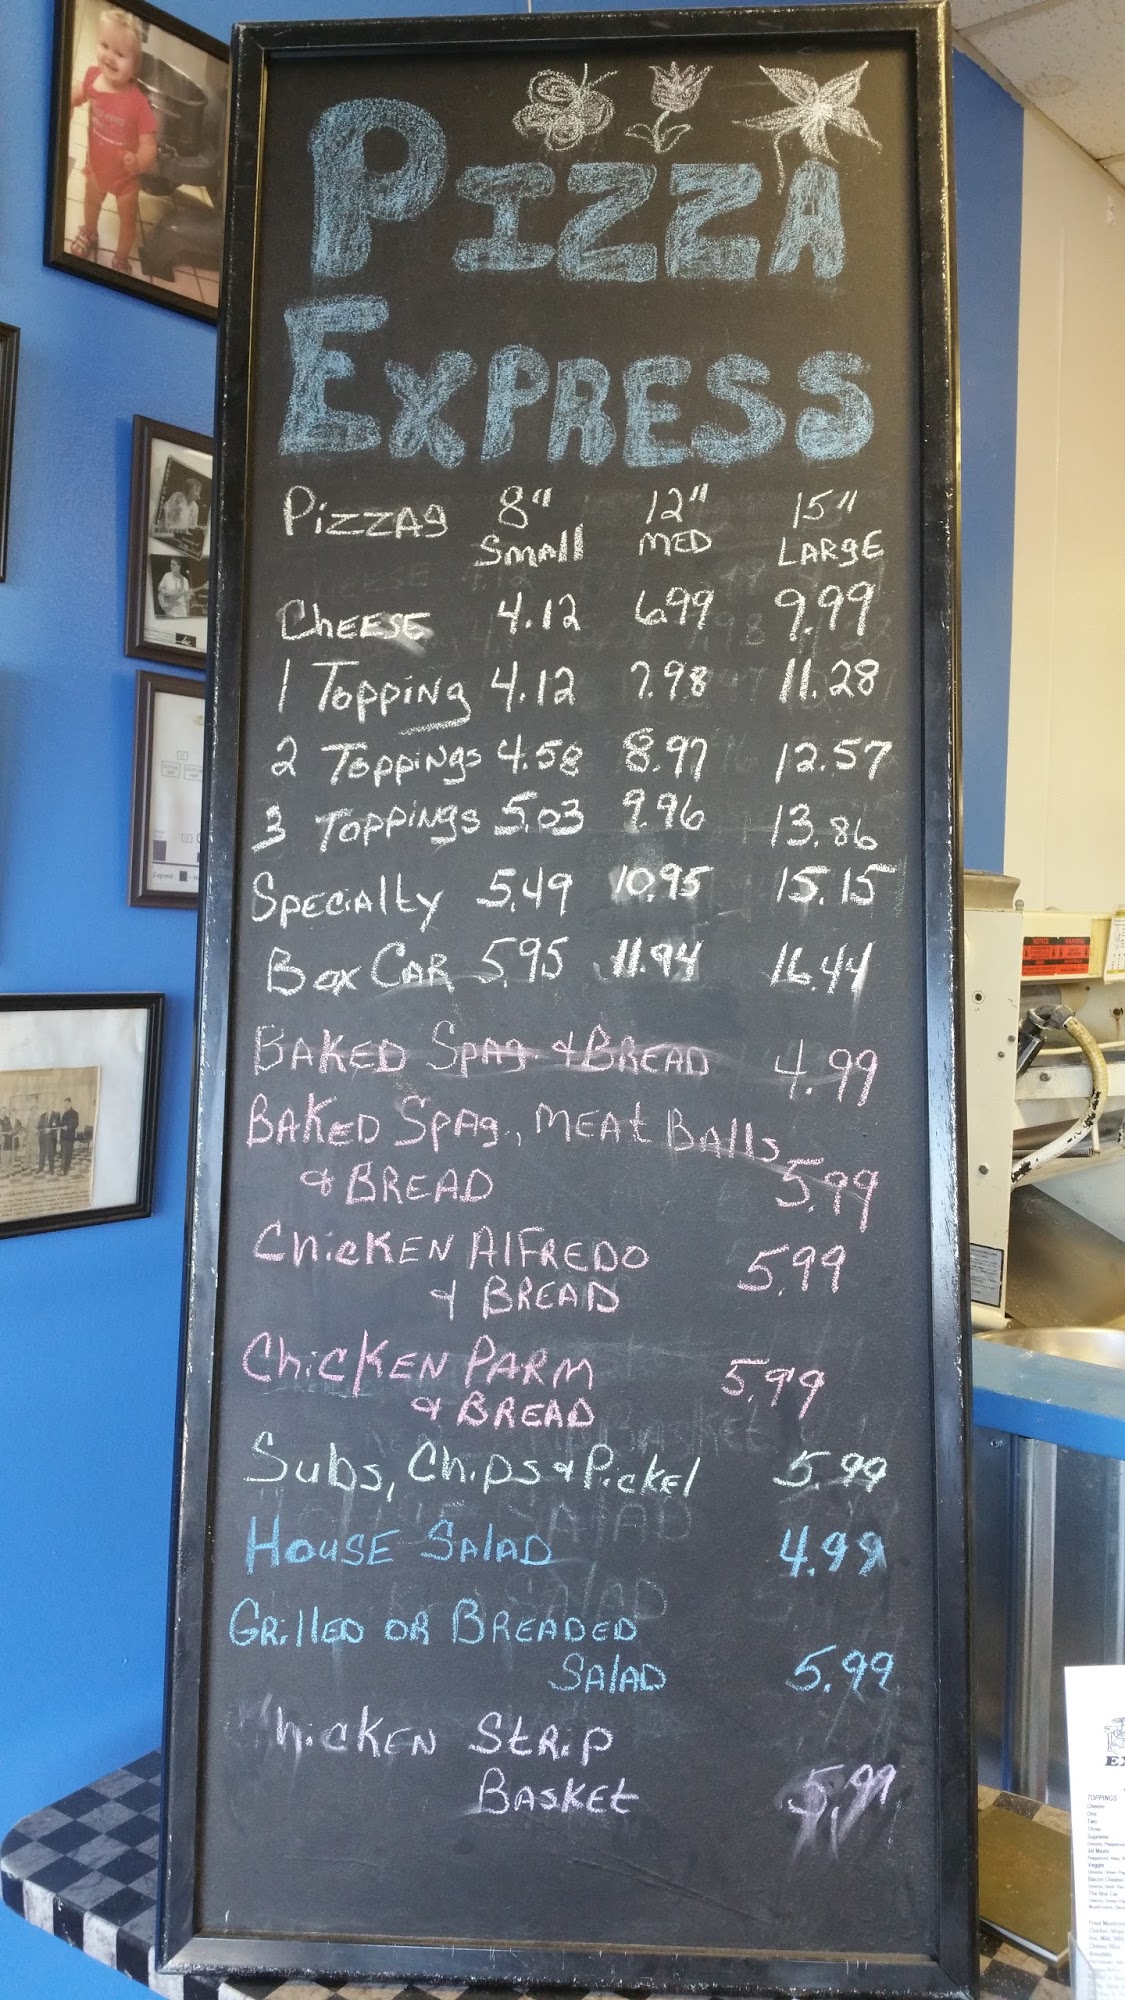 PIZZA
EXPRESS
PizzAs 8" 12" 15"
Small MED LARgE
ChEESE 4.12 6.99 9.99
1 Topping 4.12 7.98 11.28
2 Toppings 4.58 8.97 12.57
3 Toppings 5.03 9.96 13.86
Specialty 5.49 10.95 15.15
Box CAR 5.95 11.94 16.44
BAKED Spag & BREAD 4.99
BAKED Spag., MEAt BAlls
& BREAD 5.99
ChicKEN AlFREDO 5.99
& BREAD
ChicKEN PARM 5.99
& BREAD
Subs, Chips & Pickel 5.99
HOUSE SAlAD 4.99
GRillED OR BREADED
SAlAD 5.99
hicKEN StRip
BASKEt 5.99
NOTICE WARNING
TOPPINGS
Cheese
One
Two
Three
Supreme
All Meats
Veggie